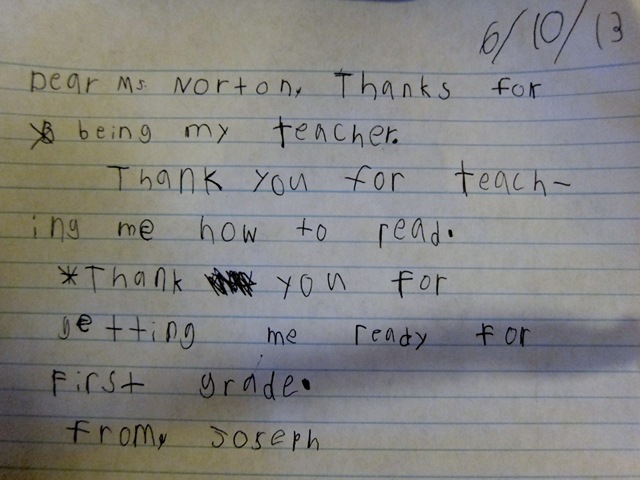 6/10/13
Dear Ms. Norton, Thanks for
being my teacher.
Thank you for teach-
ing me how to read.
*Thank you for
getting me ready for
First grade.
From, Joseph